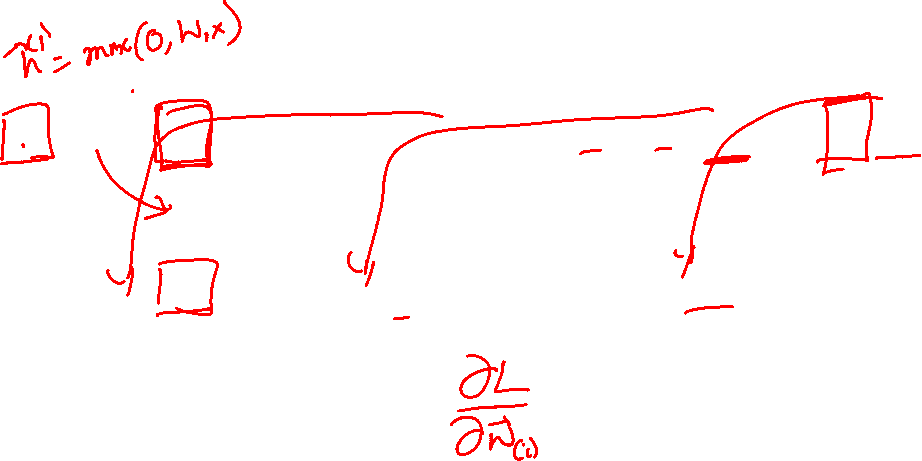 h⃗⁽¹⁾ = max(0, W₁x)
∂L
∂w⃗₍ᵢ₎